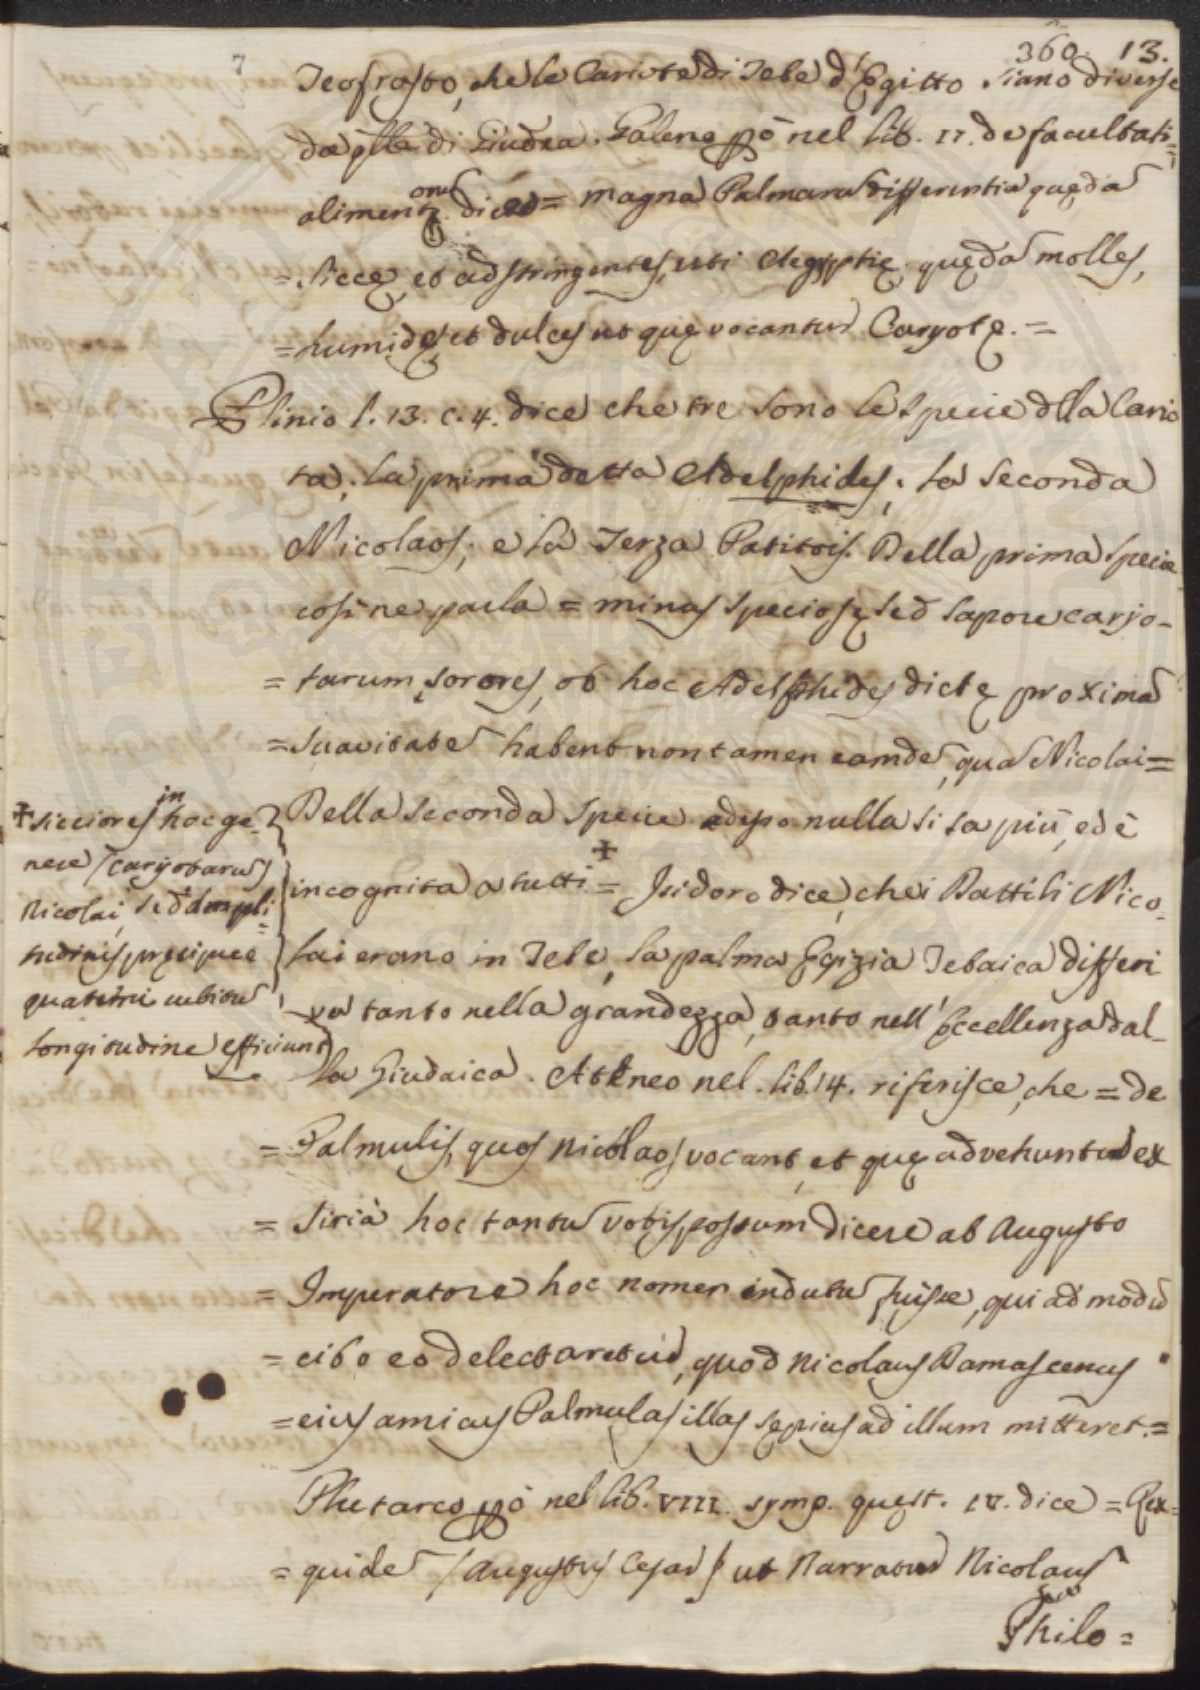 7
360. 13.
Teofrasto, che le Cariote di Tebe d'Egitto siano diverse
da qlle di Giudea. Galeno pò nel lib. II. de facultati=
alimentorum dice = magna Palmarū differentia quędā
= siccę, et adstringentes, uti Aegyptię. quędā molles,
= humidę, et dulces ut quę vocantur Caryotę. =
Plinio l. 13. c. 4. dice che tre sono le specie dlla Cario
ta; la prima detta Adelphides; la seconda
Nicolaos; e la Terza Patitois. Della prima specie
così ne parla = minus speciosę sed sapore caryo-
= tarum sorores, ob hoc Adelphides dictę proximā
= suavitatē habent non tamen eamdē, quā Nicolai =
Della seconda specie adesso nulla si sa più, ed è
incognita a tutti + = Isidoro dice, che i Dattili Nico-
lai erano in Tebe, la palma Egizia Tebaica differi
va tanto nella grandezza, tanto nell'Eccellenza dal-
la Giudaica. Ateneo nel lib. 14. riferisce, che = de
= Palmulis, quos Nicolaos vocant, et quę advehuntur ex
= Siria hoc tantū vobis possum dicere ab Augusto
= Imperatore hoc nomen indutū fuisse, qui ad modū
= cibo eo delectaretur, quod Nicolaus Damascenus
= eius amicus Palmulas illas sępius ad illum mitteret. =
Plutarco pò nel lib. VIII. symp. quęst. IV. dice = Rex
= quidē / Augustus Cesar / ut Narratur Nicolaus
Philo=
+ sicciores in hoc ge-
nere / caryotarū /
Nicolai, sed ampli
tudinis pręcipuę
quaterni cubitū
longitudine efficiunt